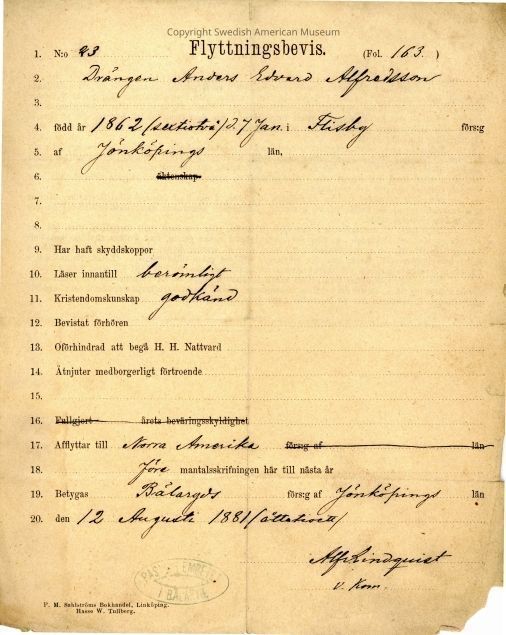 Copyright Swedish American Museum
Flyttningsbevis.
1. N:o 23 (Fol. 163. )
2. Drängen Anders Edvard Alfredsson
3.
4. född år 1862 (sextiotvå) d. 7 Jan. i Flisby förs:g
5. af Jönköpings län,
6. äktenskap
7.
8.
9. Har haft skyddskoppor
10. Läser innantill berömligt
11. Kristendomskunskap godkänd
12. Bevistat förhören
13. Oförhindrad att begå H. H. Nattvard
14. Åtnjuter medborgerligt förtroende
15.
16. Fullgjort årets beväringsskyldighet
17. Afflyttar till Norra Amerika förs:g af län
18. Före mantalsskrifningen här till nästa år
19. Betygas Bälaryds förs:g af Jönköpings län
20. den 12 Augusti 1881 (åttatioett)
Alf Lindquist
v. Kom.
I BÄLARYD
P. M. Sahlströms Bokhandel, Linköping.
Hasse W. Tullberg.